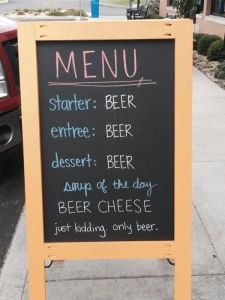 MENU
starter: BEER
entree: BEER
dessert: BEER
soup of the day
BEER CHEESE
just kidding. only beer.